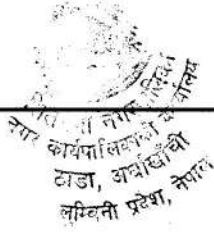 नगर कार्यपालिकाको कार्यालय
ठाडा, अर्घाखाँची
लुम्बिनी प्रदेश, नेपाल